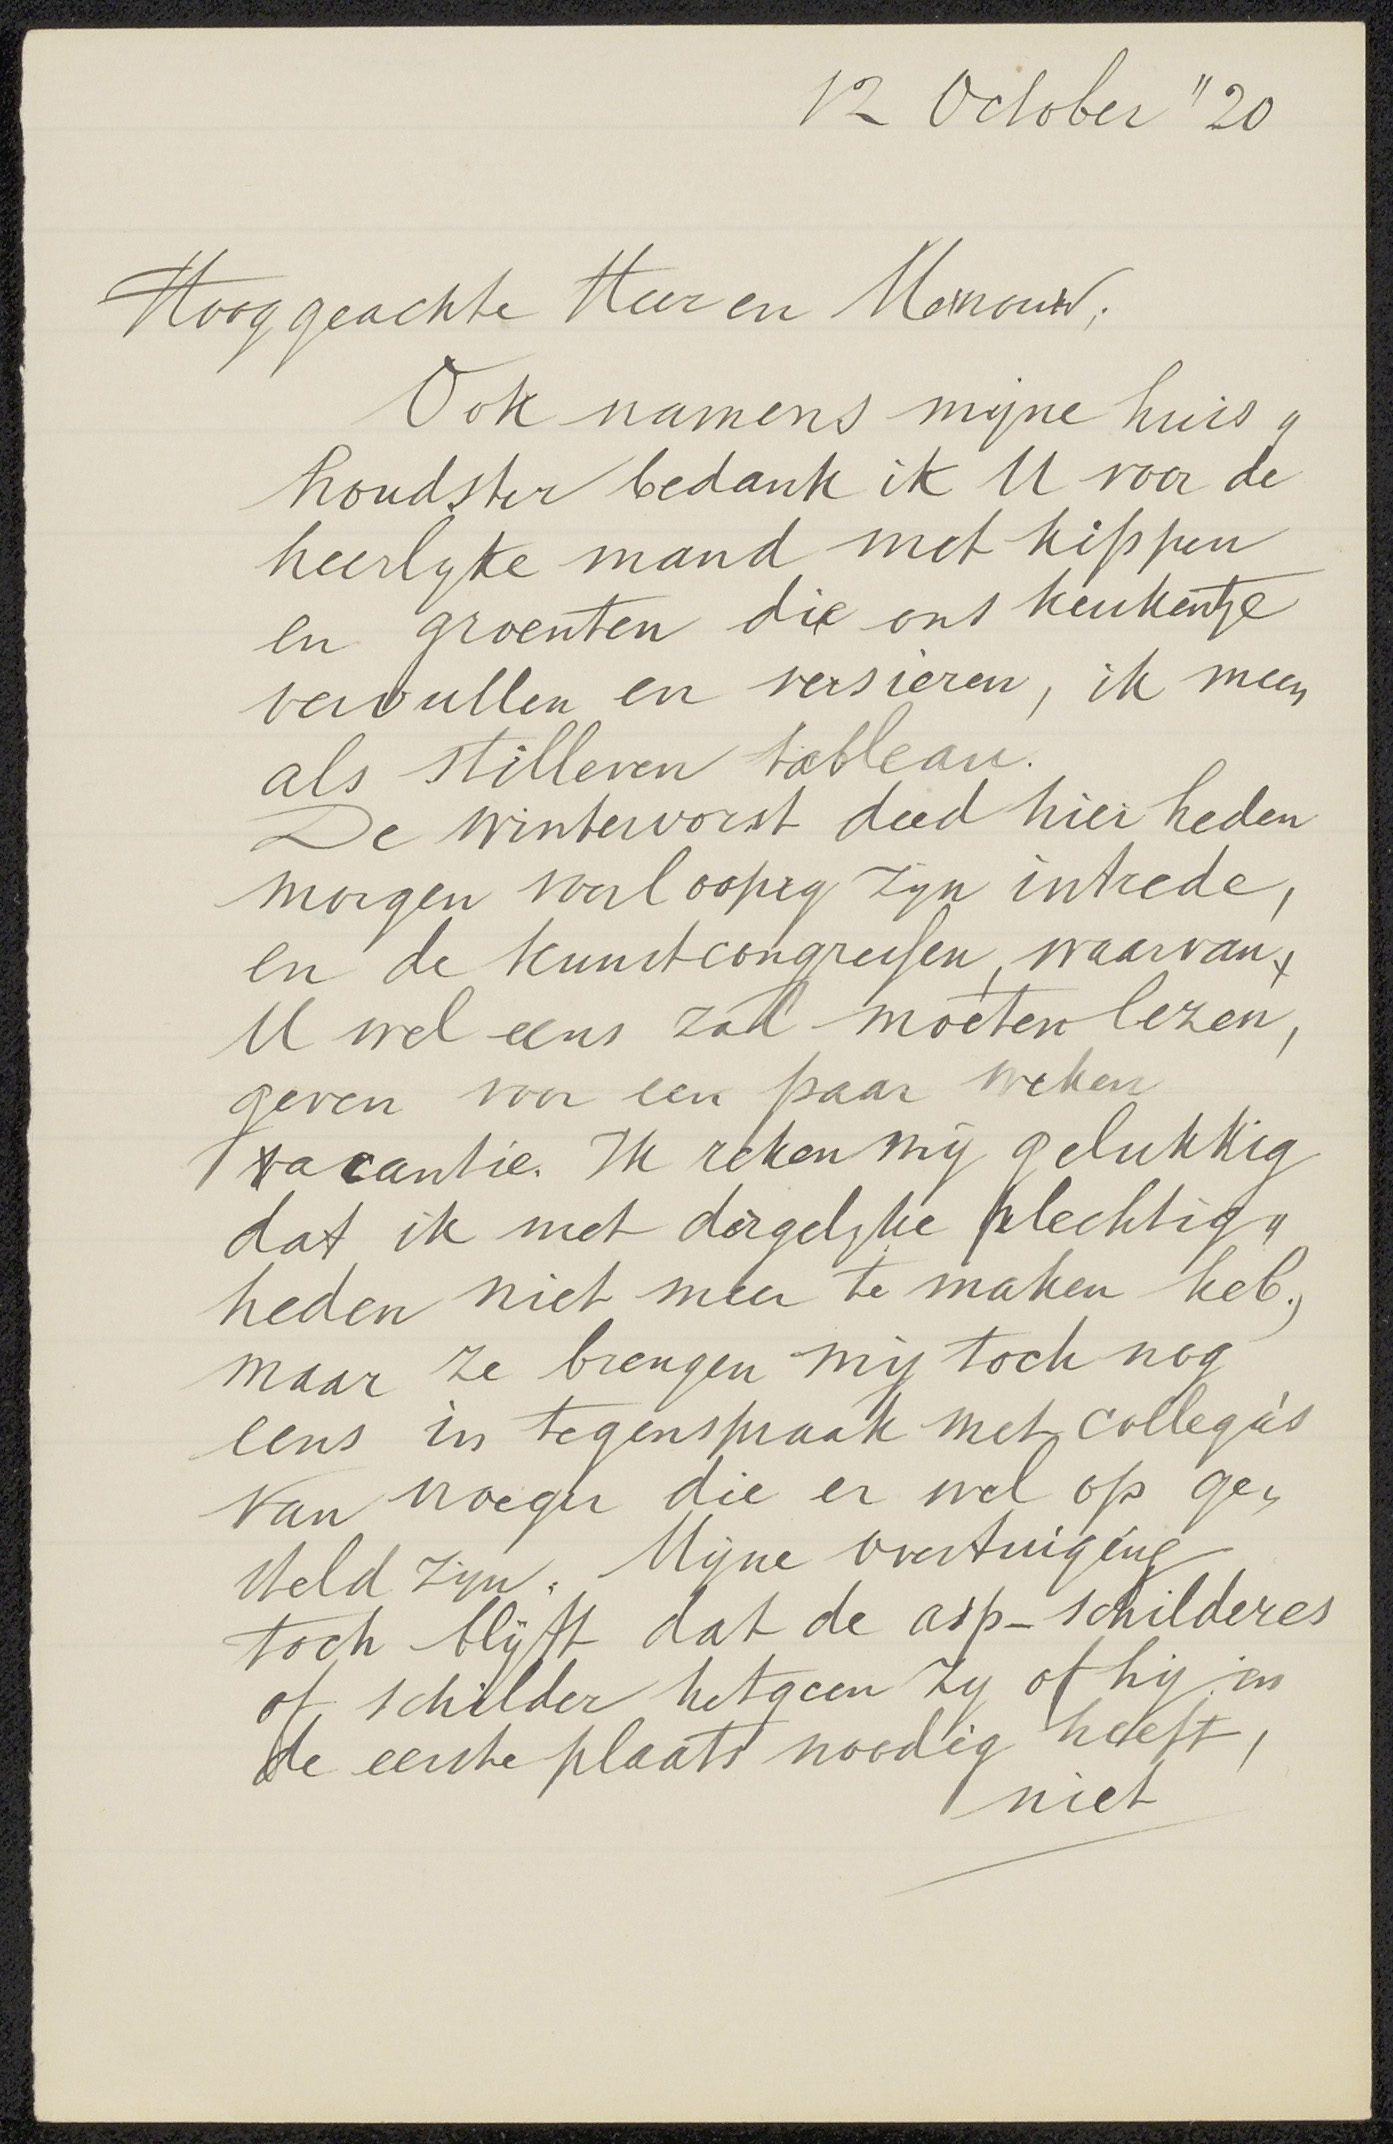 12 October "20
Hooggeachte Heer en Mevrouw,
Ook namens mijne huis„
houdster bedank ik U voor de
heerlyke mand met kippen
en groenten die ons keukentje
vervullen en versieren, ik meen
als stilleven tableau.
De wintervorst deed hier heden
morgen voorloopig zijn intrede,
en de kunstcongressen, waarvan
U wel eens zal moeten lezen,
geven voor een paar weken
vacantie. Ik reken mij gelukkig
dat ik met dergelyke plechtig„
heden niet meer te maken heb,
maar ze brengen mij toch nog
eens in tegenspraak met collega's
van vroeger die er wel op ge„
steld zijn. Mijne overtuiging
toch blijft dat de asp- schilderes
of schilder hetgeen zy of hij in
de eerste plaats noodig heeft,
niet